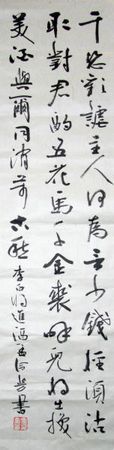 千恣歡謔主人何為言少錢徑須沽
取對君酌五花馬千金裘呼兒將出換
美酒與爾同消萬古愁 李白將進酒 書